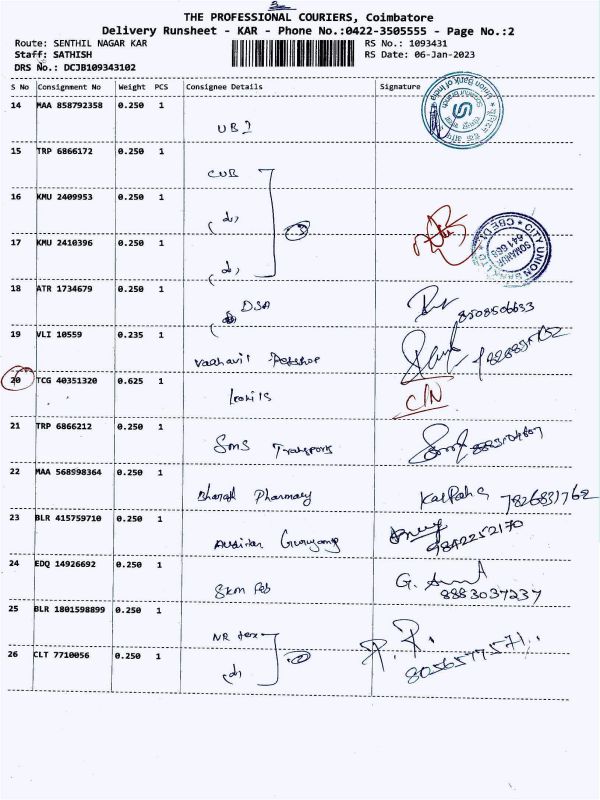 THE PROFESSIONAL COURIERS, Coimbatore
Delivery Runsheet - KAR - Phone No.:0422-3505555 - Page No.:2
Route: SENTHIL NAGAR KAR
RS No.: 1093431
Staff: SATHISH
RS Date: 06-Jan-2023
DRS No.: DCJB109343102
S No Consignment No Weight PCS Consignee Details Signature
14 MAA 858792358 0.250 1
UBI
Union Bank of India
15 TRP 6866172 0.250 1
CUB
16 KMU 2409953 0.250 1
CITY UNION BANK LTD
17 KMU 2410396 0.250 1
18 ATR 1734679 0.250 1
DSA
8508506633
19 VLI 10559 0.235 1
Petshop
20 TCG 40351320 0.625 1
C/N
21 TRP 6866212 0.250 1
SMS Transports
22 MAA 568998364 0.250 1
Bharath Pharmacy
7826831762
23 BLR 415759710 0.250 1
9842252170
24 EDQ 14926692 0.250 1
SKM Fab
8883037237
25 BLR 1801598899 0.250 1
NR tex
26 CLT 7710056 0.250 1